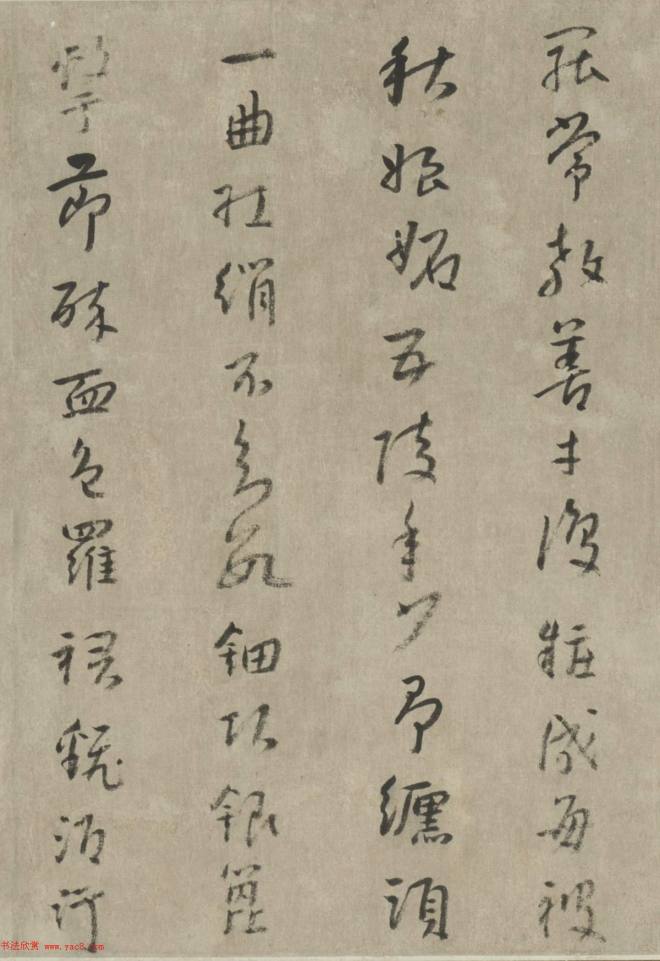 罷常教善才復粧成每被
秋娘妬五陵年少爭纏頭
一曲紅綃不知數鈿頭銀篦
擊節碎血色羅裙翻酒污
书法欣赏 www.yac8.com